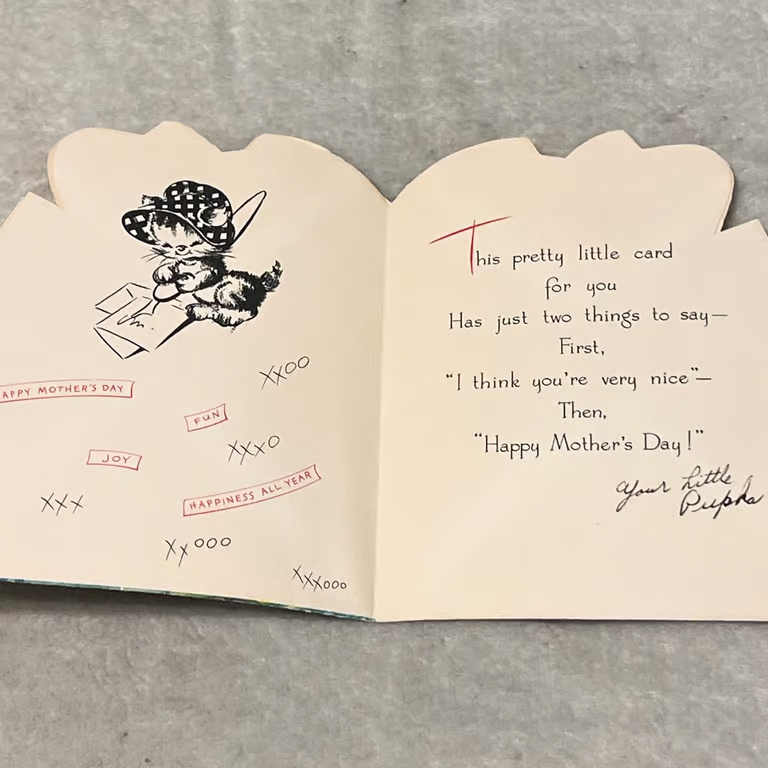 XXOO
APPY MOTHER'S DAY
FUN
XXXO
JOY
HAPPINESS ALL YEAR
XXX
XXOOO
XXXOOO
This pretty little card
for you
Has just two things to say—
First,
“I think you're very nice”—
Then,
“Happy Mother's Day!”
Your Little